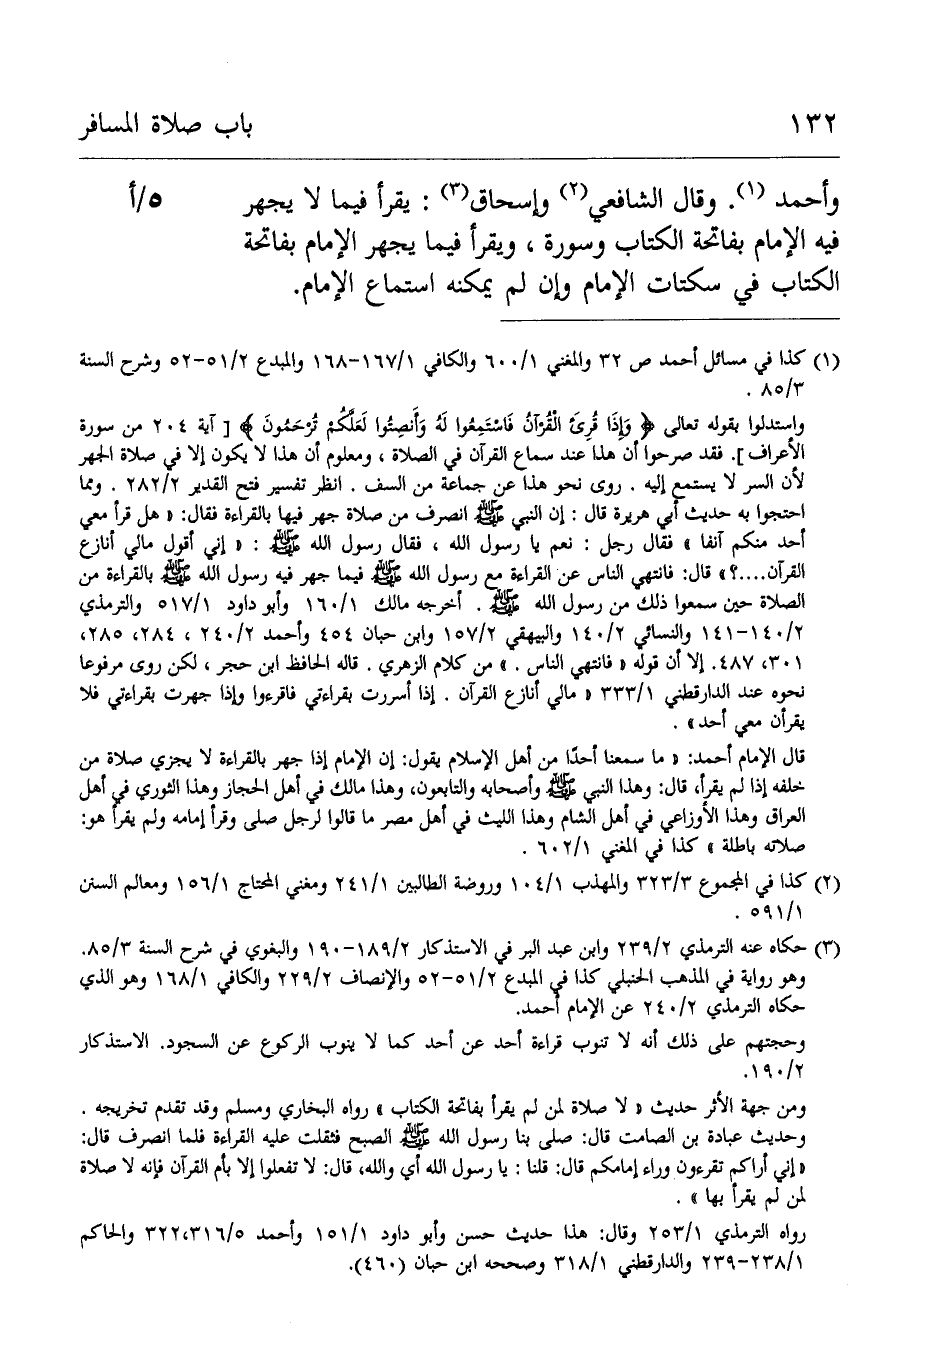 ١٣٢ باب صلاة المسافر
وأحمد (١). وقال الشافعي(٢) وإسحاق(٣) : يقرأ فيما لا يجهر ٥/أ
فيه الإمام بفاتحة الكتاب وسورة ، ويقرأ فيما يجهر الإمام بفاتحة
الكتاب في سكتات الإمام وإن لم يمكنه استماع الإمام.
(١) كذا في مسائل أحمد ص ٣٢ والمغني ٦٠٠/١ والكافي ١٦٧/١-١٦٨ والمبدع ٥١/٢-٥٢ وشرح السنة
٨٥/٣ .
واستدلوا بقوله تعالى ﴿ وَإِذَا قُرِئَ الْقُرْآنُ فَاسْتَمِعُوا لَهُ وَأَنصِتُوا لَعَلَّكُمْ تُرْحَمُونَ ﴾ [ آية ٢٠٤ من سورة
الأعراف ]. فقد صرحوا أن هذا عند سماع القرآن في الصلاة ، ومعلوم أن هذا لا يكون إلا في صلاة الجهر
لأن السر لا يستمع إليه . روى نحو هذا عن جماعة من السف . انظر تفسير فتح القدير ٢٨٢/٢ . ومما
احتجوا به حديث أبي هريرة قال : إن النبي ﷺ انصرف من صلاة جهر فيها بالقراءة فقال: « هل قرأ معي
أحد منكم آنفا » فقال رجل : نعم يا رسول الله ، فقال رسول الله ﷺ : « إني أقول مالي أنازع
القرآن....؟» قال: فانتهي الناس عن القراءة مع رسول الله ﷺ فيما جهر فيه رسول الله ﷺ بالقراءة من
الصلاة حين سمعوا ذلك من رسول الله ﷺ . أخرجه مالك ١٦٠/١ وأبو داود ٥١٧/١ والترمذي
١٤٠/٢-١٤١ والنسائي ١٤٠/٢ والبيهقي ١٥٧/٢ وابن حبان ٤٥٤ وأحمد ٢٤٠/٢ ، ٢٨٤، ٢٨٥،
٣٠١، ٤٨٧. إلا أن قوله « فانتهي الناس . » من كلام الزهري . قاله الحافظ ابن حجر ، لكن روى مرفوعا
نحوه عند الدارقطني ٣٣٣/١ « مالي أنازع القرآن . إذا أسررت بقراءتي فاقرءوا وإذا جهرت بقراءتي فلا
يقرأن معي أحد» .
قال الإمام أحمد: « ما سمعنا أحدًا من أهل الإسلام يقول: إن الإمام إذا جهر بالقراءة لا يجزي صلاة من
خلفه إذا لم يقرأ، قال: وهذا النبي ﷺ وأصحابه والتابعون، وهذا مالك في أهل الحجاز وهذا الثوري في أهل
العراق وهذا الأوزاعي في أهل الشام وهذا الليث في أهل مصر ما قالوا لرجل صلى وقرأ إمامه ولم يقرأ هو:
صلاته باطلة » كذا في المغني ٦٠٢/١ .
(٢) كذا في المجموع ٣٢٣/٣ والمهذب ١٠٤/١ وروضة الطالبين ٢٤١/١ ومغني المحتاج ١٥٦/١ ومعالم السنن
٥٩١/١ .
(٣) حكاه عنه الترمذي ٢٣٩/٢ وابن عبد البر في الاستذكار ١٨٩/٢-١٩٠ والبغوي في شرح السنة ٨٥/٣.
وهو رواية في المذهب الحنبلي كذا في المبدع ٥١/٢-٥٢ والإنصاف ٢٢٩/٢ والكافي ١٦٨/١ وهو الذي
حكاه الترمذي ٢٤٠/٢ عن الإمام أحمد.
وحجتهم على ذلك أنه لا تنوب قراءة أحد عن أحد كما لا ينوب الركوع عن السجود. الاستذكار
١٩٠/٢.
ومن جهة الأثر حديث « لا صلاة لمن لم يقرأ بفاتحة الكتاب » رواه البخاري ومسلم وقد تقدم تخريجه .
وحديث عبادة بن الصامت قال: صلى بنا رسول الله ﷺ الصبح فثقلت عليه القراءة فلما انصرف قال:
« إني أراكم تقرءون وراء إمامكم قال: قلنا : يا رسول الله أي والله، قال: لا تفعلوا إلا بأم القرآن فإنه لا صلاة
لمن لم يقرأ بها » .
رواه الترمذي ٢٥٣/١ وقال: هذا حديث حسن وأبو داود ١٥١/١ وأحمد ٣٢٢،٣١٦/٥ والحاكم
٢٣٨/١-٢٣٩ والدارقطني ٣١٨/١ وصححه ابن حبان (٤٦٠).